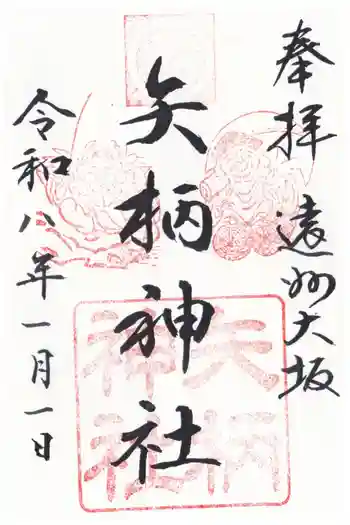 奉拝 遠州大坂
矢柄神社
令和八年一月一日
矢柄
神社